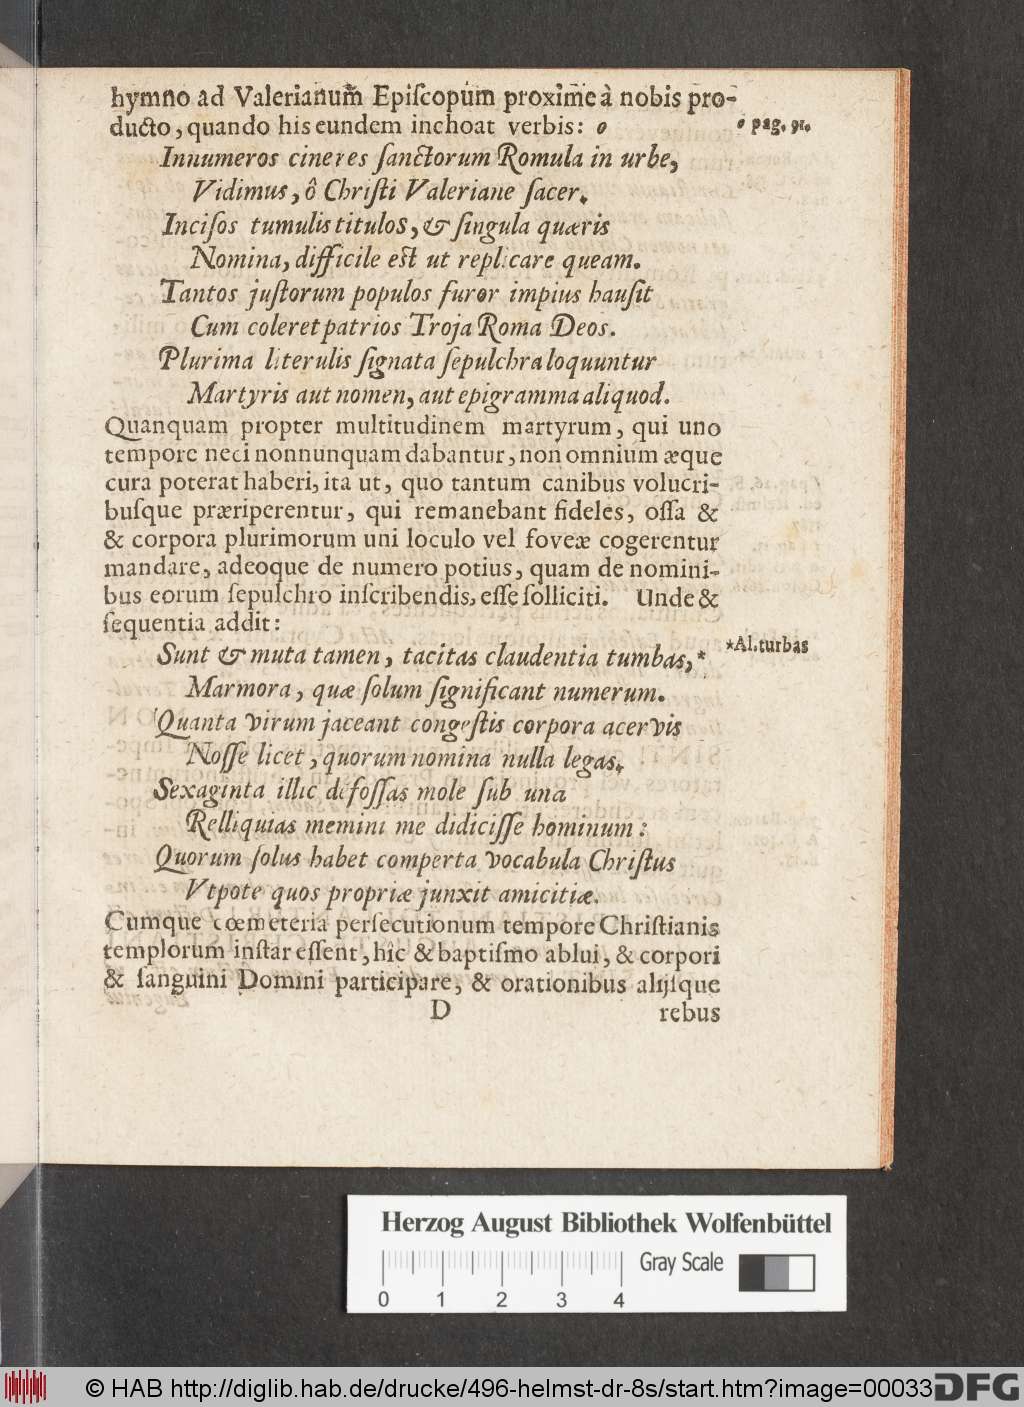 hymno ad Valerianum Epiſcopum proxime à nobis pro-
ducto, quando his eundem inchoat verbis: o
o pag. 91.
Innumeros cineres ſanctorum Romula in urbe,
Vidimus, ô Chriſti Valeriane ſacer.
Inciſos tumulis titulos, & ſingula quæris
Nomina, difficile eſt ut replicare queam.
Tantos juſtorum populos furor impius hauſit
Cum coleret patrios Troja Roma Deos.
Plurima literulis ſignata ſepulchra loquuntur
Martyris aut nomen, aut epigramma aliquod.
Quanquam propter multitudinem martyrum, qui uno
tempore neci nonnunquam dabantur, non omnium æque
cura poterat haberi, ita ut, quo tantum canibus volucri-
buſque præriperentur, qui remanebant fideles, oſſa &
& corpora plurimorum uni loculo vel foveæ cogerentur
mandare, adeoque de numero potius, quam de nomini-
bus eorum ſepulchro inſcribendis, eſſe ſolliciti. Unde &
ſequentia addit:
Sunt & muta tamen, tacitas claudentia tumbas,*
*Al. turbas
Marmora, quæ ſolum ſignificant numerum.
Quanta virum jaceant congeſtis corpora acervis
Noſſe licet, quorum nomina nulla legas.
Sexaginta illic defoſſas mole ſub una
Relliquias memini me didiciſſe hominum:
Quorum ſolus habet comperta vocabula Chriſtus
Vtpote quos propriæ junxit amicitiæ.
Cumque cœmeteria perſecutionum tempore Chriſtianis
templorum inſtar eſſent, hîc & baptiſmo ablui, & corpori
& ſanguini Domini participare, & orationibus aliiſque
D rebus
Herzog August Bibliothek Wolfenbüttel
Gray Scale
0 1 2 3 4
© HAB http://diglib.hab.de/drucke/496-helmst-dr-8s/start.htm?image=00033
DFG